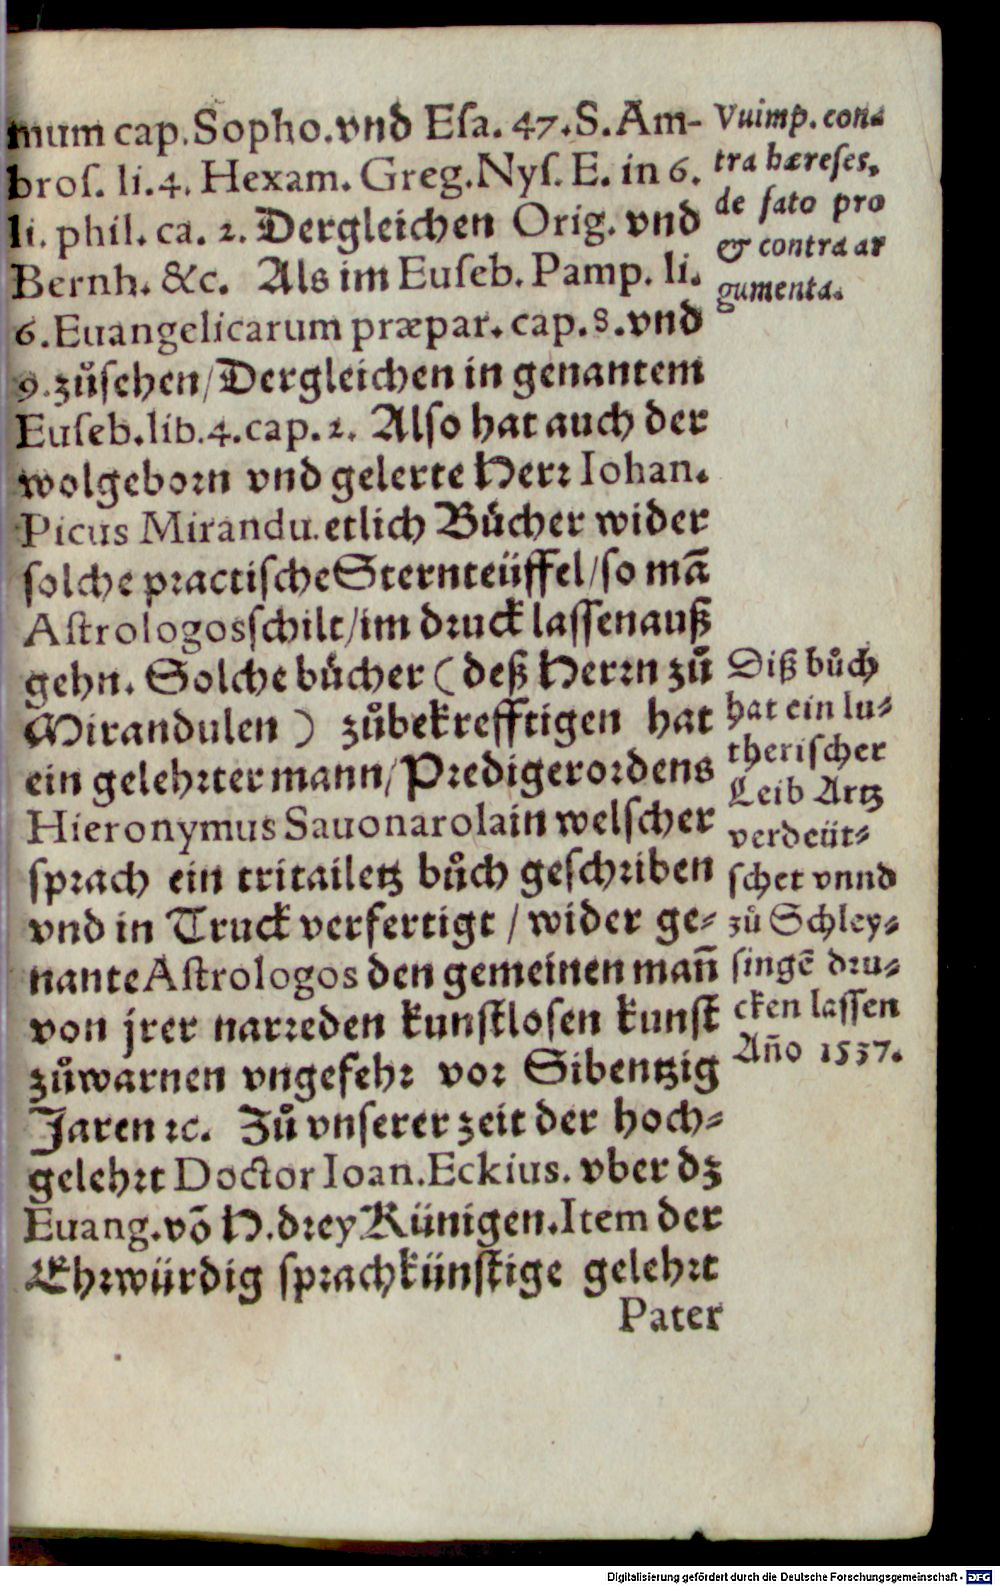 mum cap. Sopho. vnd Esa. 47. S. Am-
bros. li. 4. Hexam. Greg. Nys. E. in 6.
li. phil. ca. 2. Dergleichen Orig. vnd
Bernh. &c. Als im Euseb. Pamp. li.
6. Euangelicarum præpar. cap. 8. vnd
9. zůsehen / Dergleichen in genantem
Euseb. lib. 4. cap. 2. Also hat auch der
wolgeborn vnd gelerte Herr Iohan.
Picus Mirandu. etlich Bůcher wider
solche practische Sternteüffel / so mā
Astrologos schilt / im druck lassen auß
gehn. Solche bůcher ( deß Herrn zů
Mirandulen ) zůbekrefftigen hat
ein gelehrter mann / Predigerordens
Hieronymus Sauonarola in welscher
sprach ein tritailetz bůch geschriben
vnd in Truck verfertigt / wider ge-
nante Astrologos den gemeinen mañ
von jrer narreden kunstlosen kunst
zůwarnen vngefehr vor Sibentzig
Jaren ꝛc. Zů vnserer zeit der hoch-
gelehrt Doctor Ioan. Eckius. vber dz
Euang. võ H. drey Künigen. Item der
Ehrwürdig sprachkünstige gelehrt
Pater
Vuimp. con-
tra hæreses,
de fato pro
& contra ar
gumenta.
Diß bůch
hat ein lu-
therischer
Leib Artz
verdeüt-
schet vnnd
zů Schley-
singē dru-
cken lassen
Año 1537.
Digitalisierung gefördert durch die Deutsche Forschungsgemeinschaft - DFG